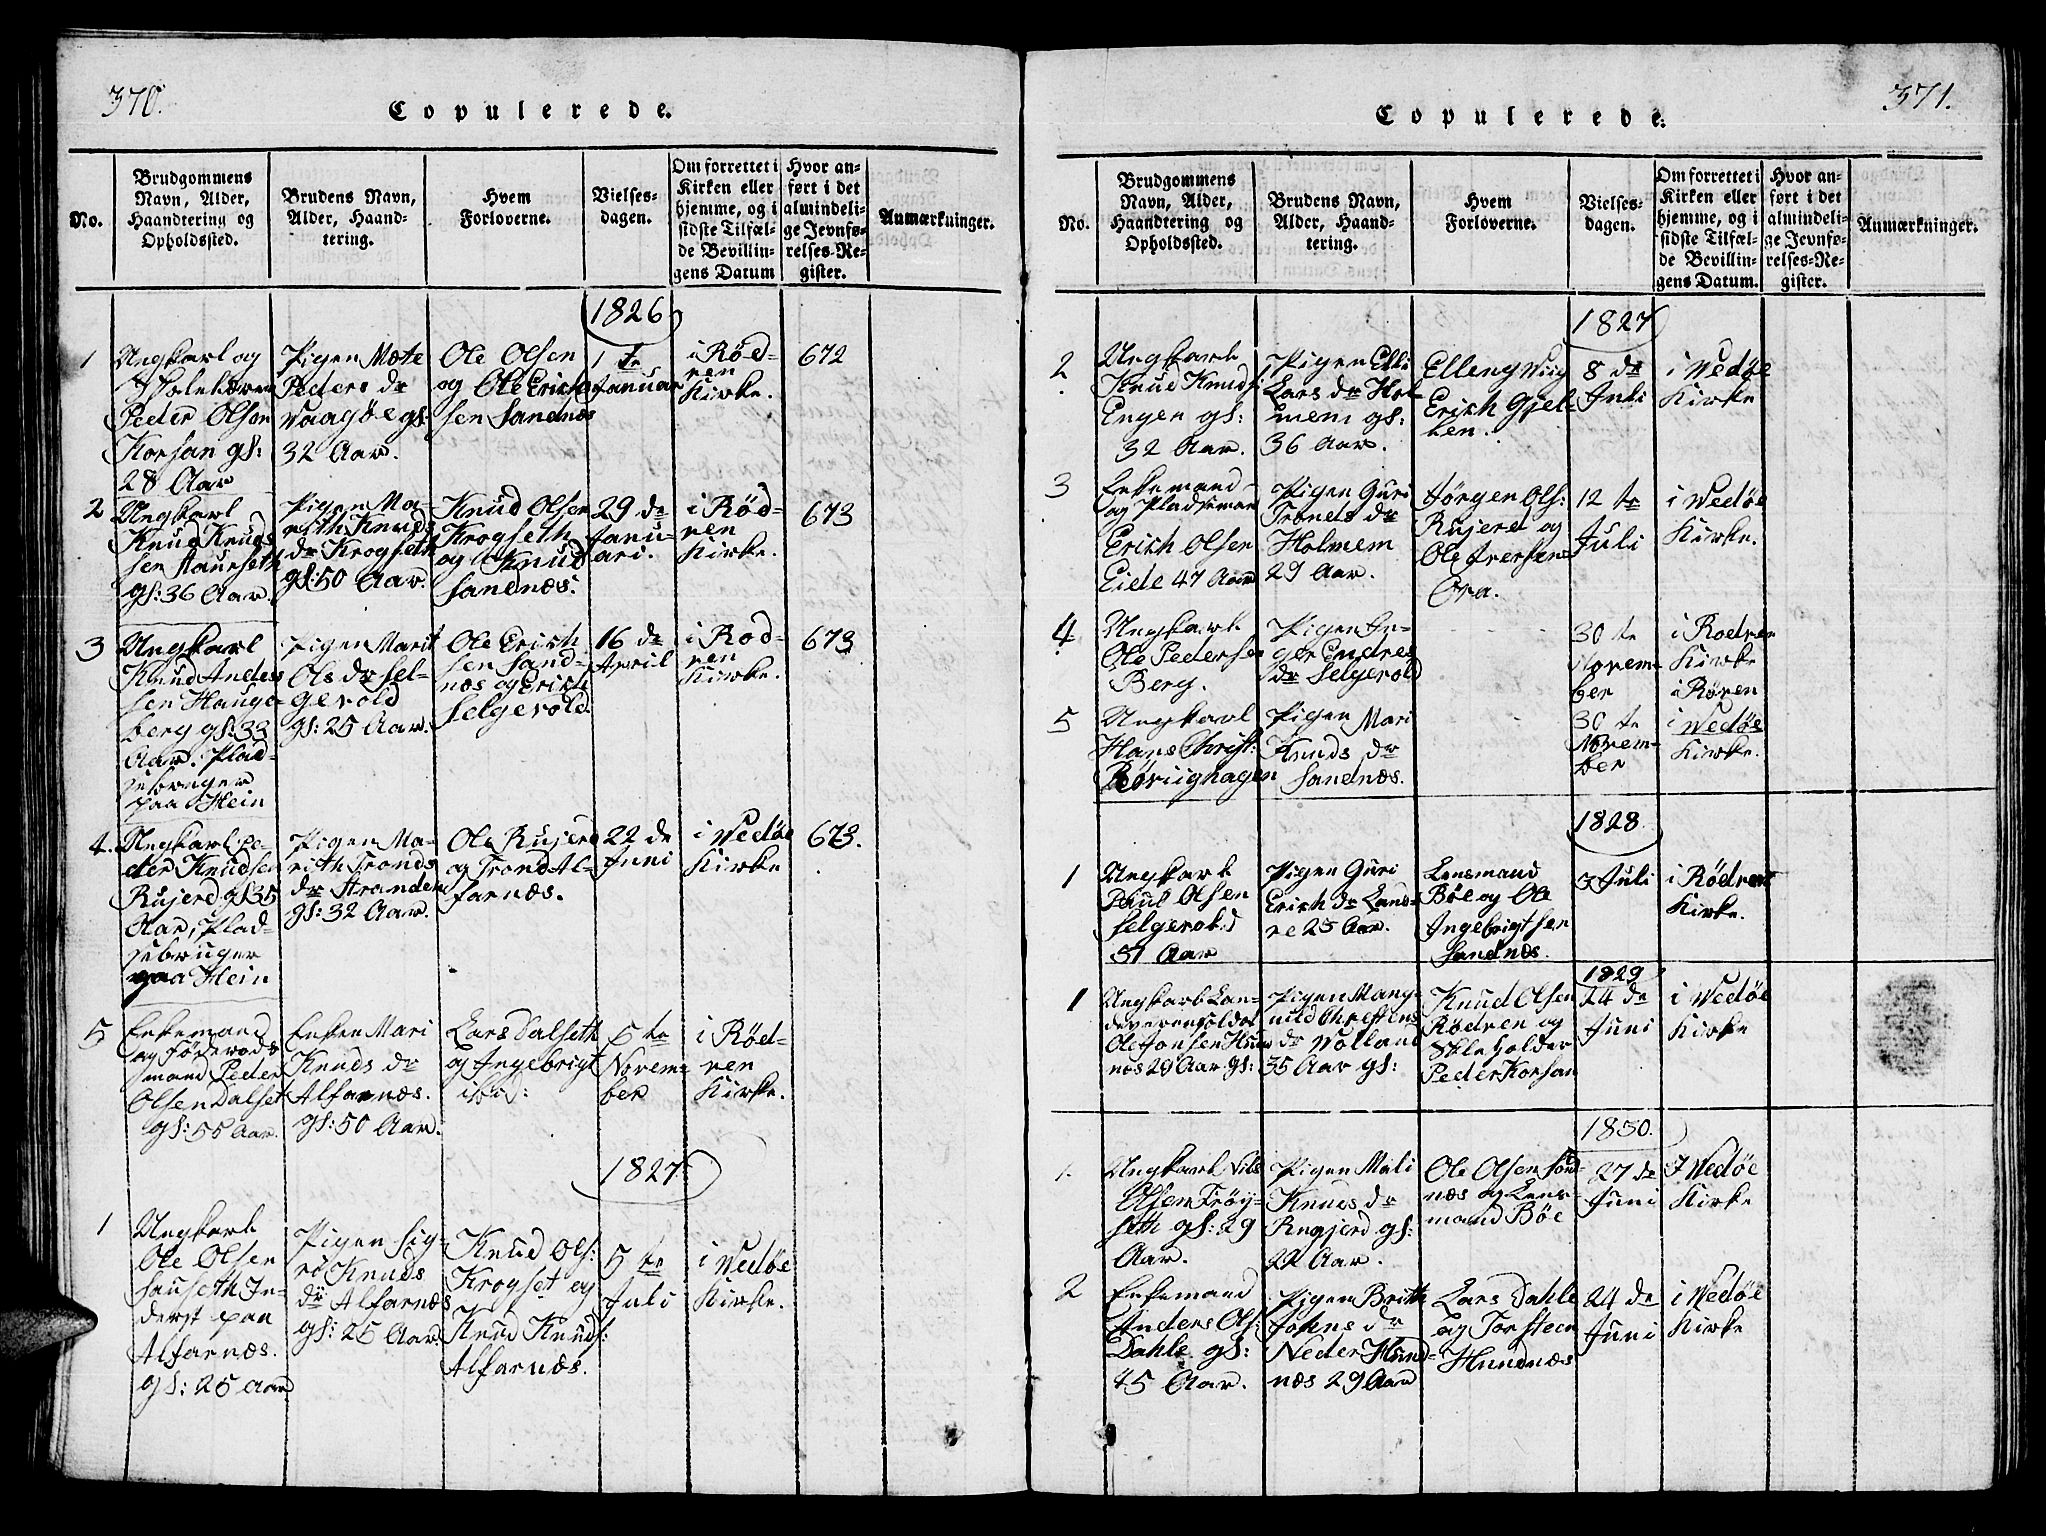 370.
Copulerede.
No.
Brudgommens
Navn, Alder,
Haandtering og
Opholdssted.
Brudens Navn,
Alder, Haand-
tering.
Hvem
Forloverne.
Vielses-
dagen.
Om forrettet i
Kirken eller
hjemme, og i
sidste Tilfæl-
de Bevillin-
gens Datum
Hvor an-
ført i det
almindeli-
ge Jevnfø-
relses-Re-
gister.
Anmærkninger.
1826
1
Ungkarl og
Skoleholder
Peder Olsen
Korsan gl:
28 Aar
Pigen Mæte
Peders dr
Vaagøe gl:
32 Aar.
Ole Olsen
og Ole Erich
sen Sandnæs
1 te
Januar
i Rød-
ven
Kirke.
672
2
Ungkarl
Knud Knuds
sen Staurseth
gl: 36 Aar.
Pigen Ma-
rith Knuds
dr Krogseth
gl: 50 Aar.
Knud Olsen
Krogseth
og Knud
Sandnæs.
29 de
Janu-
ari.
i Rød-
ven
Kirke.
673
3
Ungkarl
Knud Anders
sen Hauge-
berg gl: 33
Aar. Plad-
sebruger
paa Hein
Pigen Marit
Ols dr Sel-
gerold
gl: 25 Aar.
Ole Erich
sen Sand-
næs og Erich
Selgerold.
16 de
April
i Rød-
ven
Kirke.
673
4.
Ungkarl Pe-
der Knudsen
Rujerd gl 35
Aar, Plad-
sebruger
paa Hein
Pigen Ma-
rith Tronds
dr Stranden
gl: 32 Aar.
Ole Rujerd
og Trond Al-
farnæs.
22 de
Juni
i Wedøe
Kirke
673.
5
Enkemand
og Føderods-
mand Peder
Olsen Dalset
gl: 55 Aar.
Enken Mari
Knuds dr
Alfarnæs.
gl: 50 Aar.
Lars Dalseth
og Ingebrigt
ibid:
5 te
Novem-
ber
i Rød-
ven
Kirke.
1827.
1
Ungkarl
Ole Olsen
Sauseth In-
derst paa
Alfarnæs.
gl: 25 Aar
Pigen Sig-
rø Knuds
dr Alfarnæs
gl: 25 Aar.
Knud Ols:
Krogset og
Knud Knuds:
Alfarnæs.
5 te
Juli
i Wedøe
Kirke.
371.
Copulerede.
No.
Brudgommens
Navn, Alder,
Haandtering og
Opholdssted.
Brudens Navn,
Alder, Haand-
tering.
Hvem
Forloverne.
Vielses-
dagen.
Om forrettet i
Kirken eller
hjemme, og i
sidste Tilfæl-
de Bevillin-
gens Datum.
Hvor an-
ført i det
almindeli-
ge Jevnfø-
relses-Re-
gister.
Anmærkninger.
1827
2
Ungkarl
Knud Knuds
Engen gl:
32 Aar.
Pigen Elli
Lars dr Hol-
mem gl:
36 Aar.
Elleng Wiig
Erich Gjel-
ten.
8 de
Juli
i Wedøe
Kirke
3
Enkemand
og Pladseman
Erich Olsen
Eide 47 Aar
Pigen Guri
Tronds dr
Holmem
29 Aar.
Jørgen Ols:
Rujerd og
Ole Iversen
Ora.
12 te
Juli
i Wedøe
Kirke.
4
Ungkarl
Ole Pedersen
Berg.
Pigen In-
ger Endres
dr Selgerold
30 te
Novem-
ber
i Rødven
Kirke
i Røven
5
Ungkarl
Hans Christ:
Børiighagen
Pigen Mari
Knuds dr
Sandnæs.
30 te
Novem-
ber
i Wedøe
Kirke.
1828.
1
Ungkarl
Poul Olsen
Selgerold
31 Aar
Pigen Guri
Erich dr Lans-
re 25 Aar.
Lensmand
Bøe og Ole
Ingebrigtsen
Sandnæs.
3 Juli
i Rødven
Kirke.
1829
1
Ungkarl Lan-
deværensoldat
Ole Jonsen Hund
næs 29 Aar gl:
Pigen Mang-
nild Christens
dr Wolland
35 Aar gl:
Knud Olsen
Rødven og
Skleholder
Peder Korsan
24 de
Juni
i Wedøe
Kirke
1830.
1.
Ungkarl Nils
Olsen Frøy-
seth gl: 29
Aar.
Pigen Mali
Knuds dr
Rugjerd gl:
22 Aar.
Ole Olsen Sand-
næs og Lens-
mand Bøe
27 de
Juni
I Wedøe
Kirke
2
Enkemand
Anders Ols:
Dahle gl:
45 Aar.
Pigen Brith
Johns dr
Neder Hund-
næs 29 Aar
Lars Dahle
og Torsteen
Hundnæs
24 de
Juni
i Wedøe
Kirke